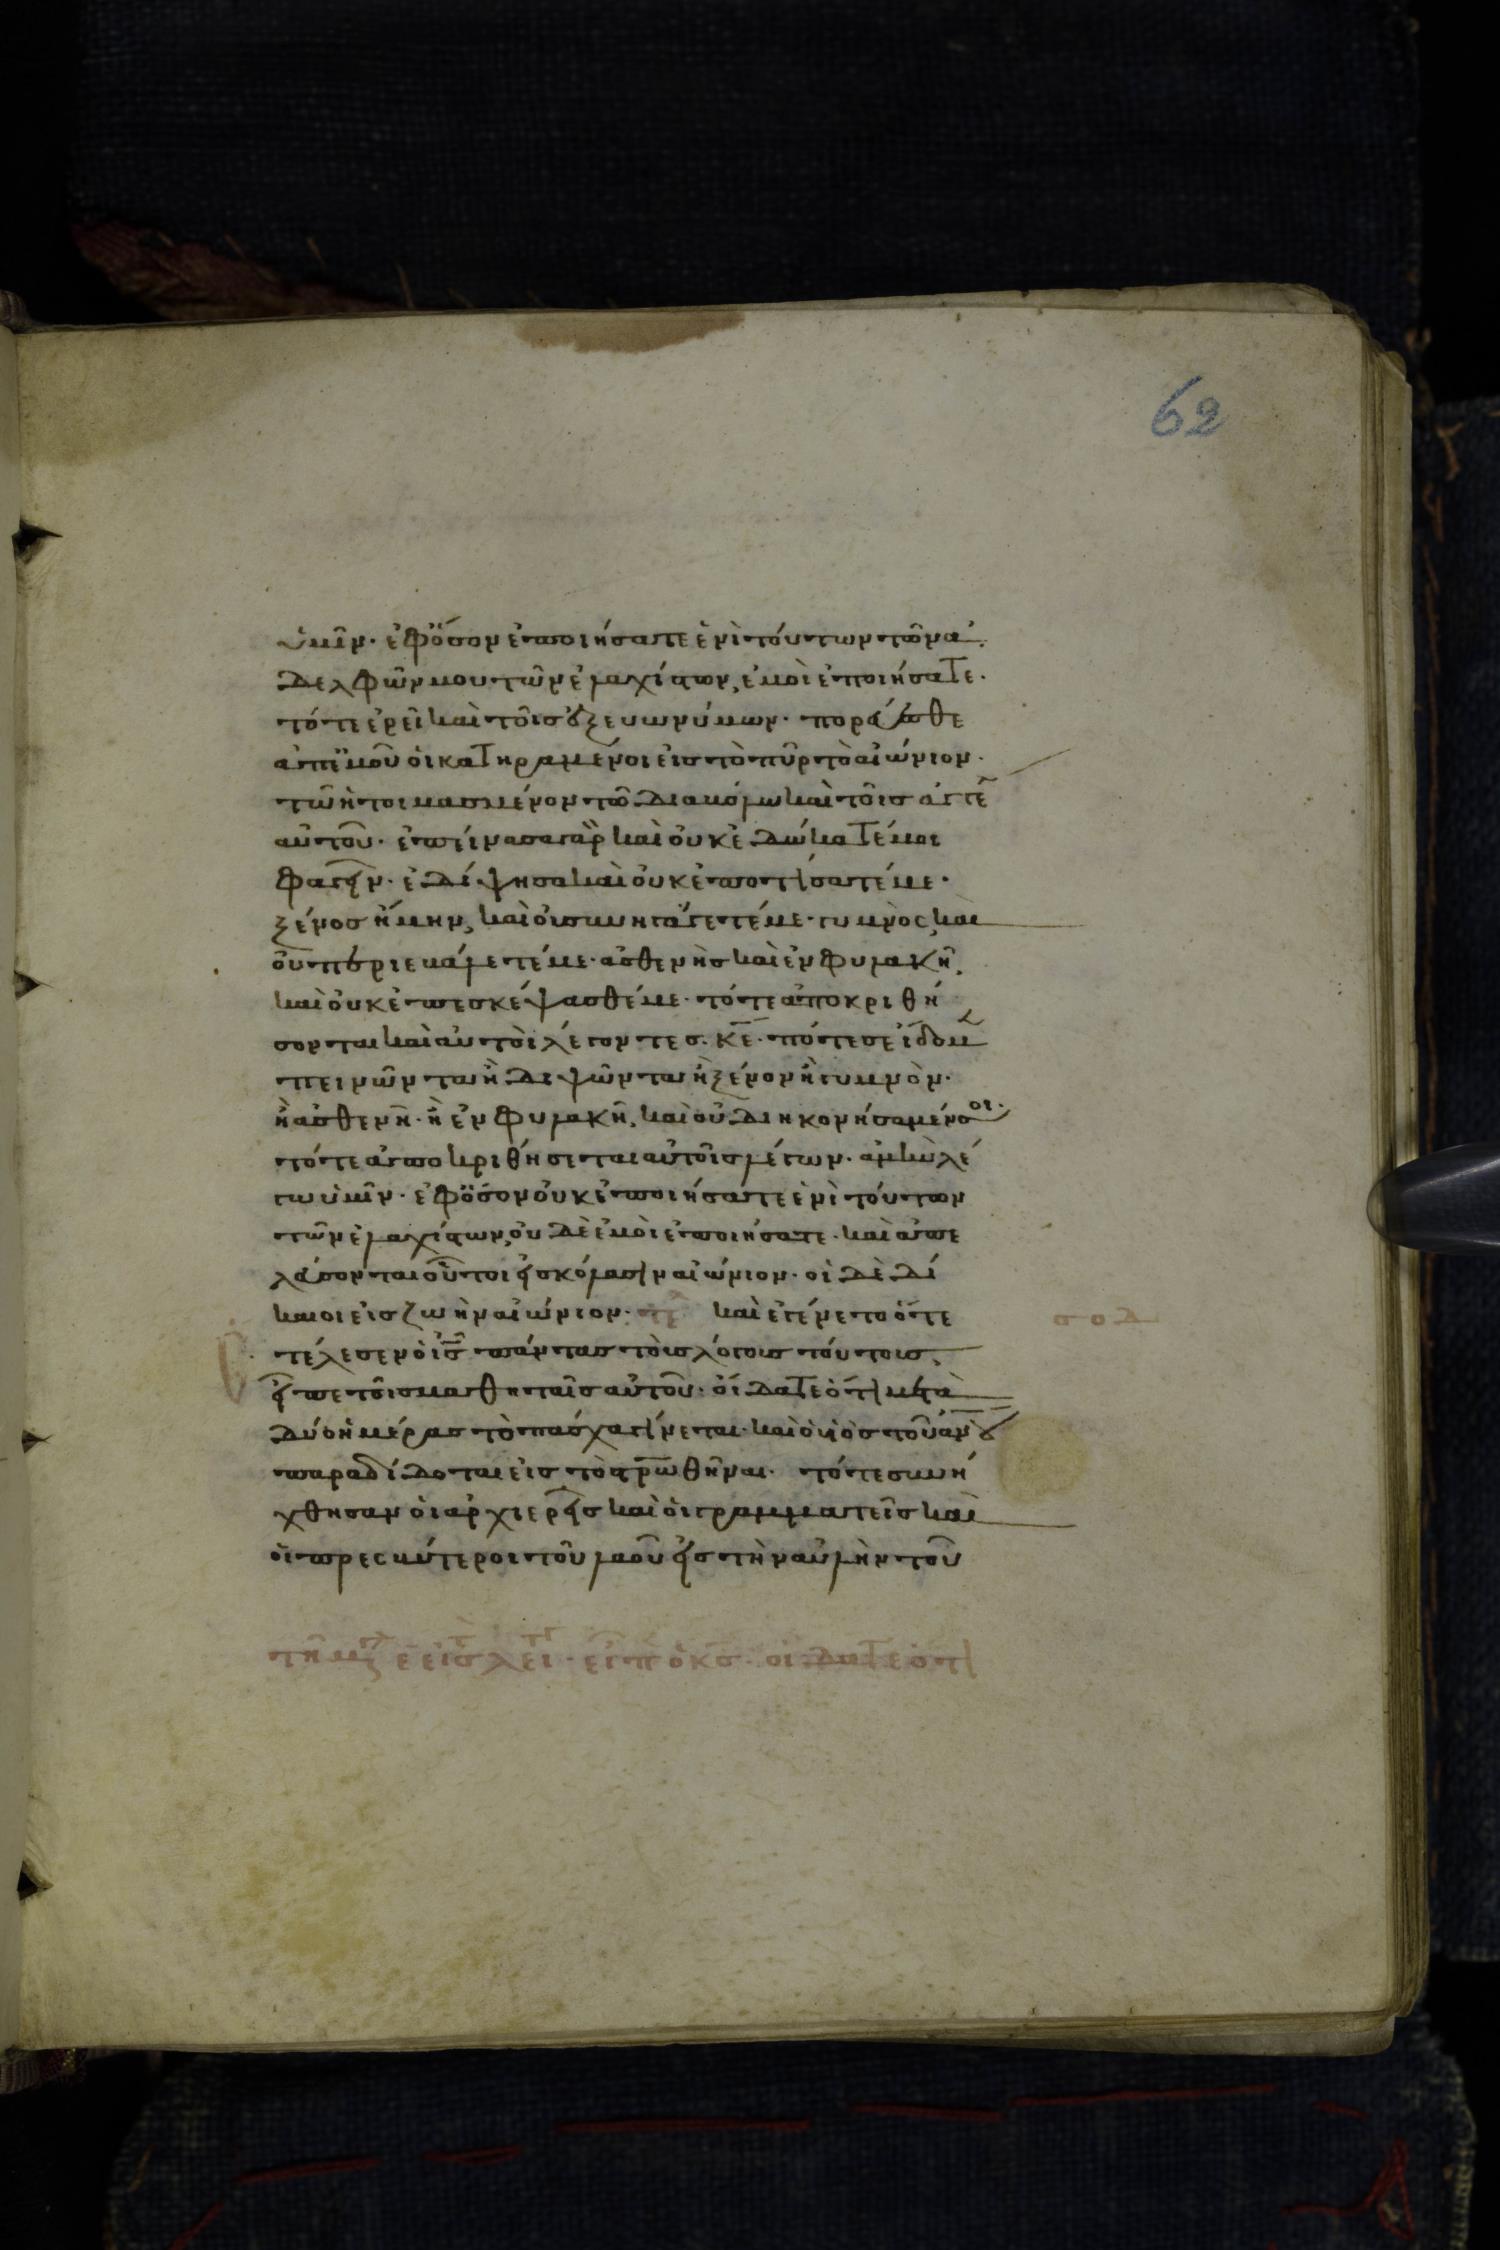 62
ὑμῖν· ἐφόσον ἐποιήσατε ἑνὶ τούτων τῶν ἀ
δελφῶν μου τῶν ἐλαχίστων, ἐμοὶ ἐποιήσατε·
τότε ἐρεῖ καὶ τοῖς ἐξ εὐωνύμων· πορεύεσθε
ἀπ' ἐμοῦ οἱ κατηραμένοι εἰς τὸ πῦρ τὸ αἰώνιον·
τῶ ἡτοιμασμένον τῶ διαβόλω καὶ τοῖς ἀγγέ
αὐτοῦ· ἐπείνασα γὰρ καὶ οὐκ ἐδώκατέ μοι
φαγεῖν· ἐδίψησα καὶ οὐκ ἐποτίσατέ με·
ξένος ἤμην, καὶ οὐ συνηγάγετέ με· γυμνὸς, καὶ
οὐ περιεβάλετέ με· ἀσθενὴς καὶ ἐν φυλακῆ,
καὶ οὐκ ἐπεσκέψασθέ με· τότε ἀποκριθή
σονται καὶ αὐτοὶ λέγοντες· κε· πότε σε ἴδομεν
πεινῶντα ἢ διψῶντα ἢ ξένον ἢ γυμνὸν·
ἢ ἀσθενῆ· ἢ ἐν φυλακῆ, καὶ οὐ διηκονήσαμέν σοι·
τότε ἀποκριθήσεται αὐτοῖς λέγων· ἀμὴν λέ
γω ὑμῖν· ἐφόσον οὐκ ἐποιήσατε ἑνὶ τούτων
τῶν ἐλαχίστων, οὐδὲ ἐμοὶ ἐποιήσατε· καὶ ἀπε
λεύσονται οὗτοι εἰς κόλασιν αἰώνιον· οἱ δὲ δί
καιοι εἰς ζωὴν αἰώνιον· καὶ ἐγένετο ὅτε σοδ
τέλεσεν ὁ ις πάντας τοὺς λόγους τούτους,
εἶπε τοῖς μαθηταῖς αὐτοῦ· οἴδατε ὅτι μετὰ
δύο ἡμέρας τὸ πάσχα γίνεται· καὶ ὁ υἱὸς τοῦ ανου
παραδίδοται εἰς τὸ στρωθῆναι· τότε συνή
χθησαν οἱ ἀρχιερεῖς καὶ οἱ γραμματεῖς καὶ
οἱ πρεσβύτεροι τοῦ λαοῦ εἰς τὴν αὐλὴν τοῦ
εἶπ ὁ κς οἴδατε ὅτι